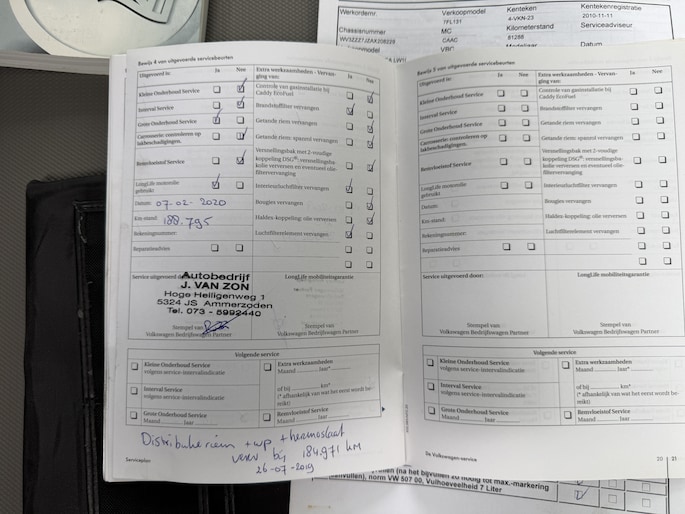 Werkordernr.
Verkoopmodel
Kenteken
Kentekenregistratie
7FL131
4-VKN-23
2010-11-11
Chassisnummer
MC
Kilometerstand
Serviceadviseur
CAAC
81288
VBC
Datum
Bewijs 4 van uitgevoerde servicebeurten
Uitgevoerd in:
Ja
Nee
Extra werkzaamheden - Vervanging van:
Ja
Nee
Kleine Onderhoud Service
Interval Service
Grote Onderhoud Service
Carrosserie: controleren op
lakbeschadigingen.
Remvloeistof Service
LongLife motorolie
gebruikt
Datum: 07-02-2020
Km-stand: 188.795
Rekeningnummer:
Reparatieadvies
Controle van gasinstallatie bij
Caddy EcoFuel
Brandstoffilter vervangen
Getande riem vervangen
Getande riem: spanrol vervangen
Versnellingsbak met 2-voudige
koppeling DSG®: versnellingsba-
kolie verversen en eventueel olie-
filtervervanging
Interieurluchtfilter vervangen
Bougies vervangen
Haldex-koppeling: olie verversen
Luchtfilterelement vervangen
Service uitgevoerd door:
LongLife mobiliteitsgarantie
Autobedrijf
J. VAN ZON
Hoge Heiligenweg 1
5324 JS Ammerzoden
Tel. 073 - 5992440
Stempel van
Volkswagen Bedrijfswagen Partner
Stempel van
Volkswagen Bedrijfswagen Partner
Volgende service
Kleine Onderhoud Service
volgens service-intervalindicatie
Interval Service
volgens service-intervalindicatie
Grote Onderhoud Service
Maand Jaar
Extra werkzaamheden
Maand Jaar*
of bij km*
(* afhankelijk van wat het eerst wordt be-
reikt)
Remvloeistof Service
Maand Jaar
Distributieriem + wp + thermostaat
verv bij 184.971 KM
26-07-2019
Serviceplan
Bewijs 5 van uitgevoerde servicebeurten
Uitgevoerd in:
Ja
Nee
Extra werkzaamheden - Vervan-
ging van:
Ja
Nee
Kleine Onderhoud Service
Interval Service
Grote Onderhoud Service
Carrosserie: controleren op
lakbeschadigingen.
Remvloeistof Service
LongLife motorolie
gebruikt
Datum:
Km-stand:
Rekeningnummer:
Reparatieadvies
Controle van gasinstallatie bij
Caddy EcoFuel
Brandstoffilter vervangen
Getande riem vervangen
Getande riem: spanrol vervangen
Versnellingsbak met 2-voudige
koppeling DSG®: versnellingsba-
kolie verversen en eventueel olie-
filtervervanging
Interieurluchtfilter vervangen
Bougies vervangen
Haldex-koppeling: olie verversen
Luchtfilterelement vervangen
Service uitgevoerd door:
LongLife mobiliteitsgarantie
Stempel van
Volkswagen Bedrijfswagen Partner
Stempel van
Volkswagen Bedrijfswagen Partner
Volgende service
Kleine Onderhoud Service
volgens service-intervalindicatie
Interval Service
volgens service-intervalindicatie
Grote Onderhoud Service
Maand Jaar
Extra werkzaamheden
Maand Jaar*
of bij km*
(* afhankelijk van wat het eerst wordt be-
reikt)
Remvloeistof Service
Maand Jaar
Je Volkswagen-service
20
21
(na het bijvullen zo nodig tot max.-markering
norm VW 507 00, Vulhoeveelheid 7 Liter